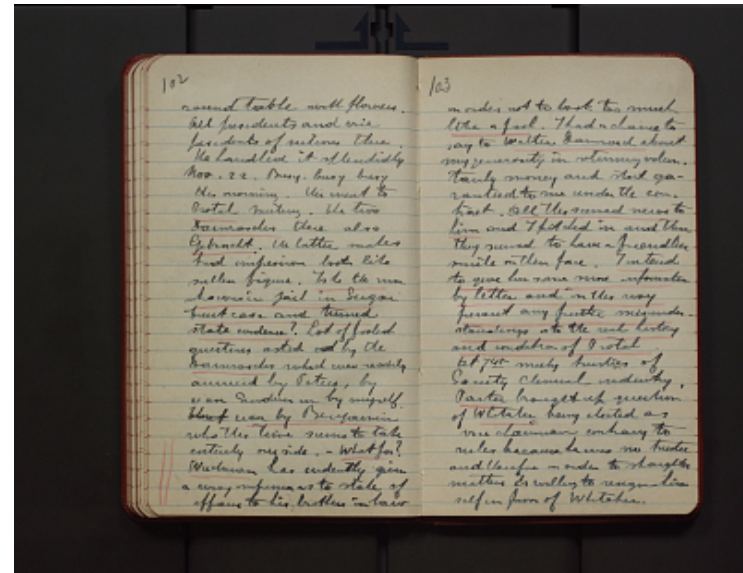 102
round table with flowers.
All presidents and vice
presidents of sections there
He handled it splendidly
Nov. 22. Busy, busy busy
this morning. Then went to
Protal meeting. The two
Damrosches there also
Gebracht. The latter makes
bad impression looks like
sullen figure. Is he the man
who was in jail in Sugar
fraud case and turned
state evidence? Lot of foolish
questions asked and by the
Damrosches which were easily
answered by Peters, by
van Sinderen or by myself.
even by Benjamin
who this time seems to take
entirely our side. - What for?
Wiechmann has evidently given
a wrong impression as to state of
affairs to his brothers in law
103
in order not to look too much
like a fool. I had a chance to
say to Walter Damrosch about
my generosity in returning volun-
tarily money and stock gua-
ranteed to me under the con-
tract. All this seemed news to
him and
they seemed to have a friendlier
smile on their face. I intend
to give him some more information
by letter and in this way
prevent any further misunder-
standings as to the real history
and condition of Protal
At 7 PM meeting trustees of
Society chemical industry.
Parker brought up question
of Whitaker being elected as
vice chairman contrary to
rules because he was no trustee
and therefore in order to straighten
matters is willing to resign him
self in favor of Whitaker.